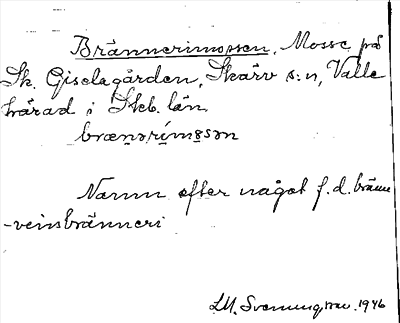 Brännerimossen, Mosse på
Sk. Giselagården, Skärv s:n, Valle
härad i Skb. län
brænərímosən
Namn efter något f.d. bränn
-vinsbränneri
1946